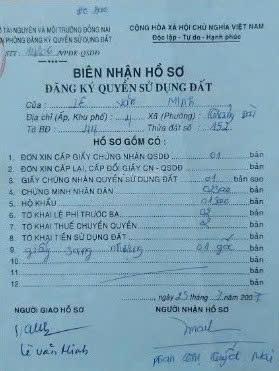 TÀI NGUYÊN VÀ MÔI TRƯỜNG ĐỒNG NAI
CỘNG HÒA XÃ HỘI CHỦ NGHĨA VIỆT NAM
PHÒNG ĐĂNG KÝ QUYỀN SỬ DỤNG ĐẤT
Độc lập - Tự do - Hạnh phúc
STT: /VPĐK-QSDĐ
BIÊN NHẬN HỒ SƠ
ĐĂNG KÝ QUYỀN SỬ DỤNG ĐẤT
Của : LÊ VĂN MINH
Địa chỉ (Ấp, Khu phố) : 4 Xã (Phường)
Tờ BĐ : 44 Thửa đất số : 152
HỒ SƠ GỒM CÓ :
1. ĐƠN XIN CẤP GIẤY CHỨNG NHẬN QSDĐ : 01 bản
2. ĐƠN XIN CẤP LẠI, CẤP ĐỔI GIẤY CN - QSDĐ : bản
3. GIẤY CHỨNG NHẬN QUYỀN SỬ DỤNG ĐẤT : 01 bản sao
4. CHỨNG MINH NHÂN DÂN : 02sao bản
5. HỘ KHẨU : 01sao bản
6. TỜ KHAI LỆ PHÍ TRƯỚC BẠ : 02 bản
7. TỜ KHAI THUẾ CHUYỂN QUYỀN : 02 bản
8. TỜ KHAI TIỀN SỬ DỤNG ĐẤT : bản
giấy sang nhượng 01 gốc bản
bản
bản
12. bản
ngày 25 tháng 7 năm 2007
NGƯỜI GIAO HỒ SƠ
NGƯỜI NHẬN HỒ SƠ
Lê Văn Minh
Phan Thị Tuyết Mai